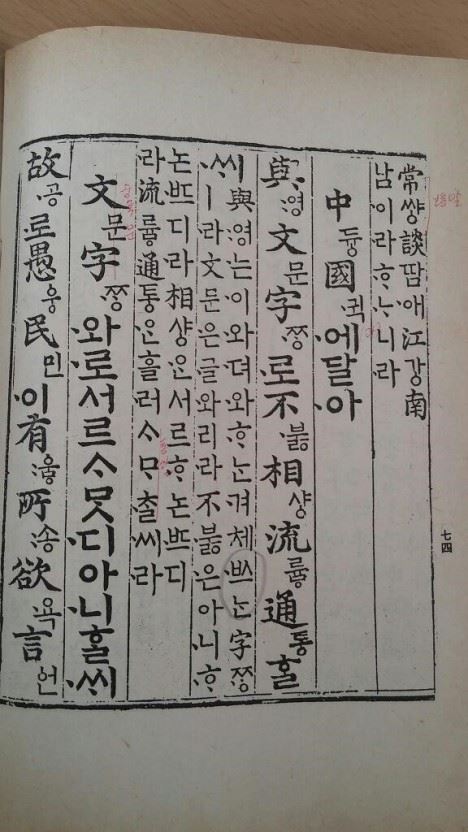 常쌍談땀애江강南
남이라ᄒᆞᄂᆞ니라
中듀ᇰ國귁에달아
與영文문字ᄍᆞᆼ로不부ᇙ相샹流류ᇢ通토ᇰᄒᆞᆯ
ᄊᆡ與영는이와뎌와ᄒᆞ논겨체ᄡᅳ는字ᄍᆞᆼ
ㅣ라文문은글와리라不부ᇙ은아니ᄒᆞ
논ᄠᅳ디라相샹ᄋᆞᆫ서르ᄒᆞ논ᄠᅳ디
라流류ᇢ通토ᇰᄋᆞᆫ흘러ᄉᆞᄆᆞᄎᆞᆯ씨라
文문字ᄍᆞᆼ와로서르ᄉᆞᄆᆞᆺ디아니ᄒᆞᆯᄊᆡ
故공로愚웅民민이有우ᇢ所송欲욕言언
七四
보통말